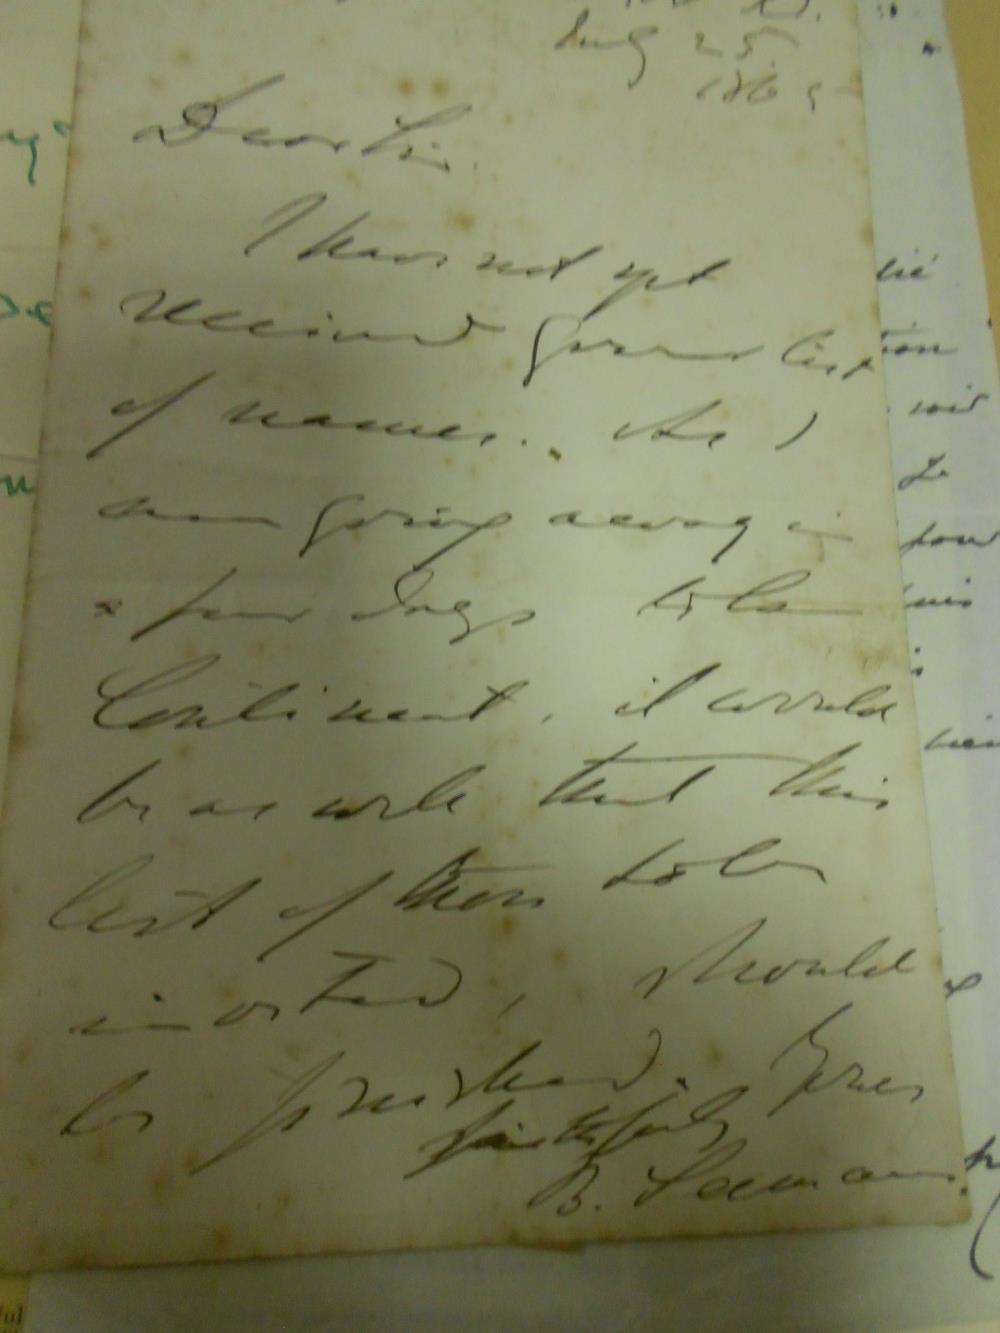 Aug 25
1865
Dear Sir.
I have not yet
received your list
of names. As I
am going away in
a few days to the
Continent, it would
be as well that this
list of those to be
inserted, should
be finished. Yours
faithfully
B. Seemann.